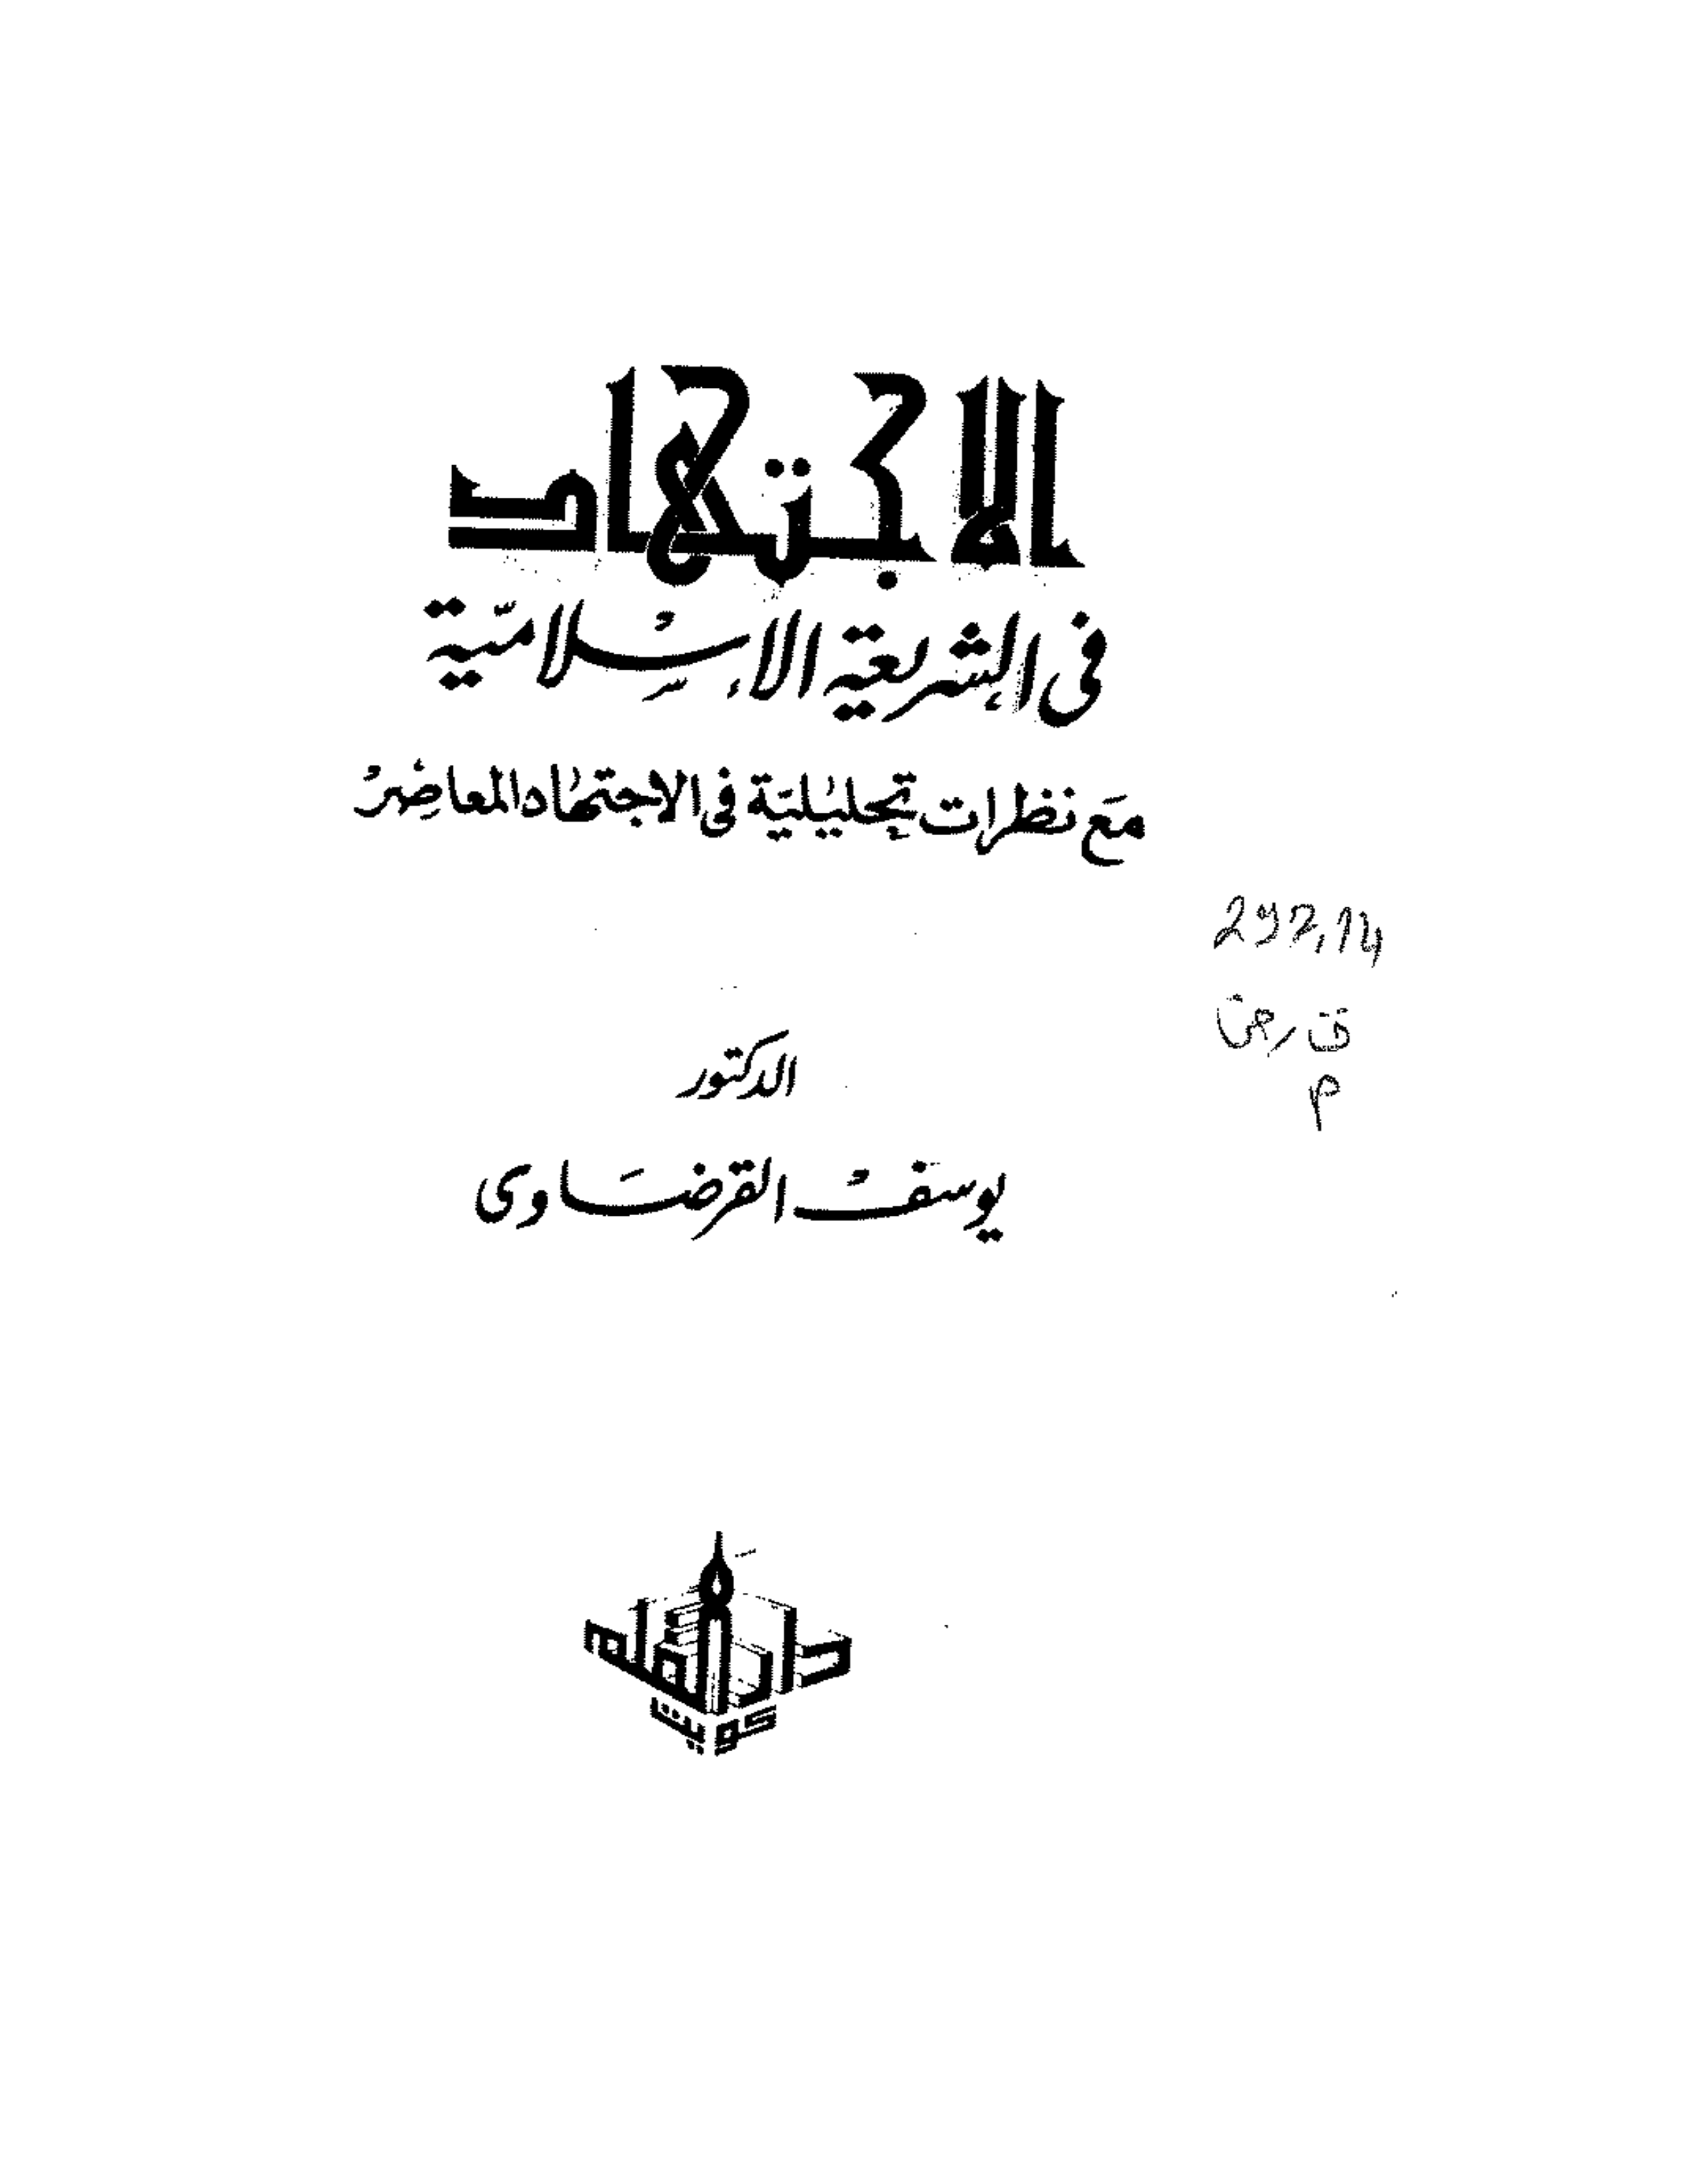 الاجتهاد
فى الشريعة الإسلامية
مع نظرات تحليلية فى الاجتهاد المعاصر
292,14
الدكتور
يوسف القرضاوى
دار القلم
كويت